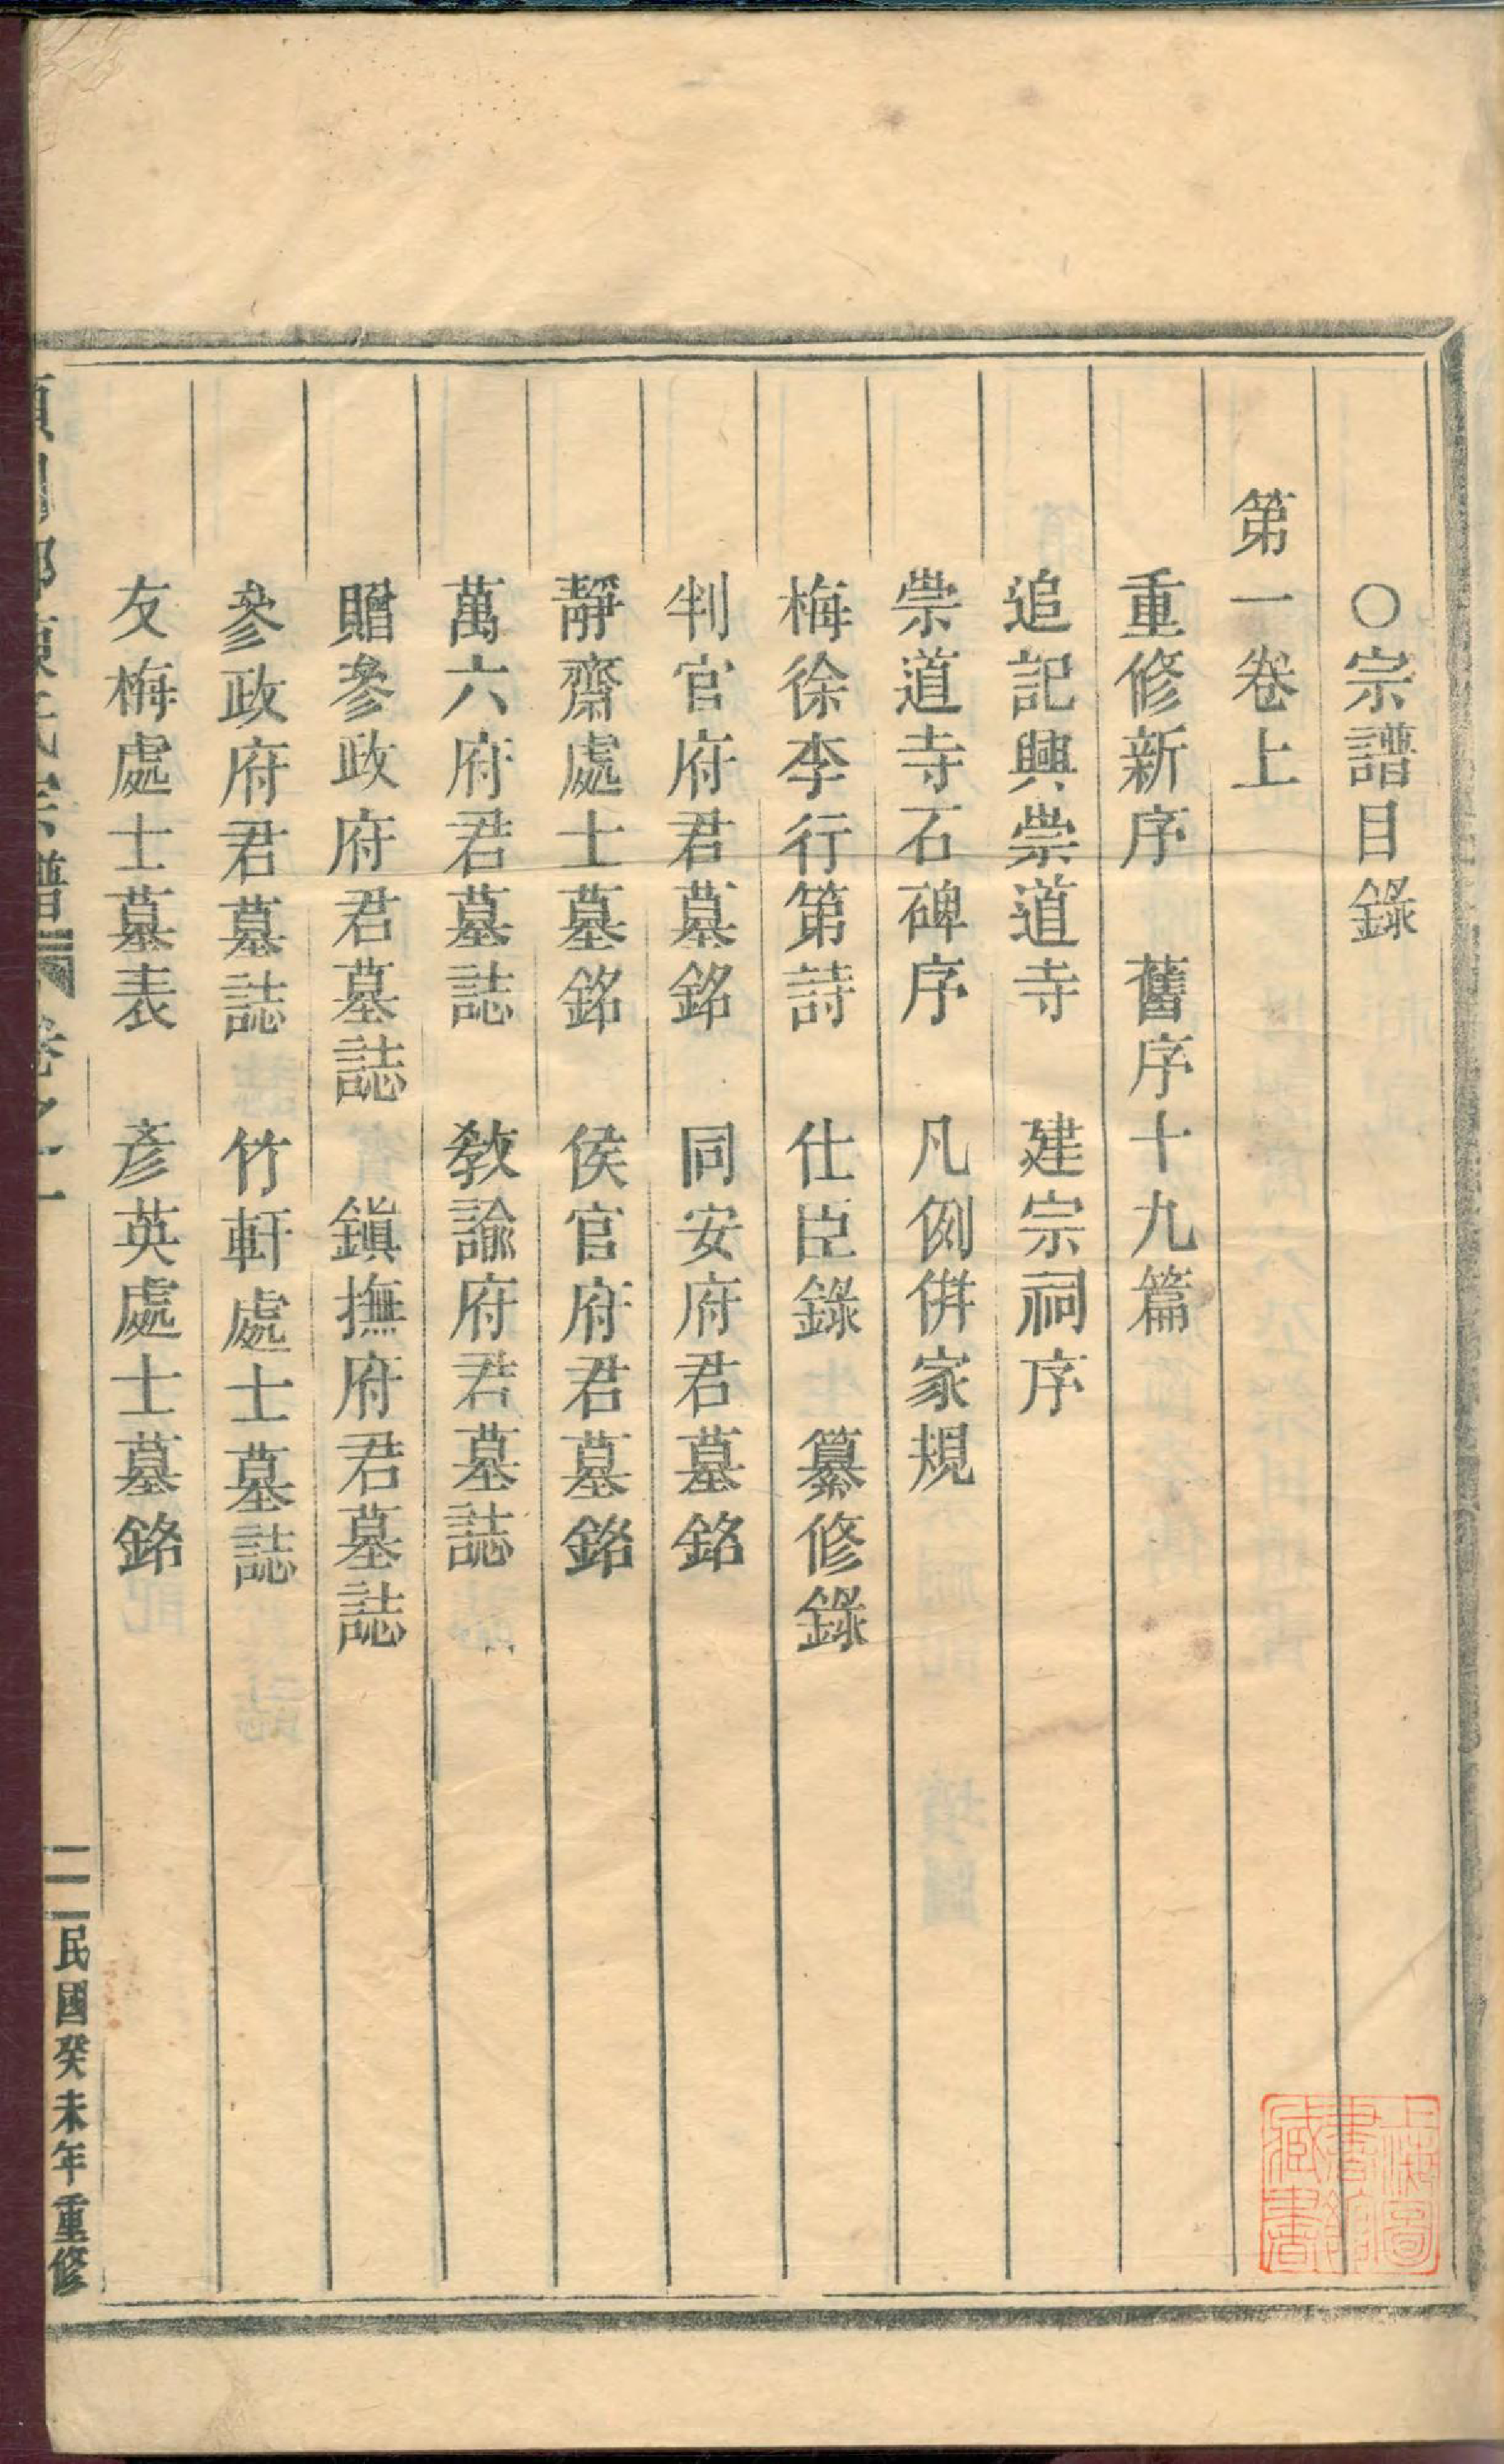 ○宗譜目錄
第一卷上
重修新序　舊序十九篇
追記興崇道寺　建宗祠序
崇道寺石碑序　凡例倂家規
梅徐李行第詩　仕臣錄　纂修錄
判官府君墓銘　同安府君墓銘
靜齋處士墓銘　侯官府君墓銘
萬六府君墓誌　敎諭府君墓誌
贈參政府君墓誌　鎭撫府君墓誌
參政府君墓誌　竹軒處士墓誌
友梅處士墓表　彥英處士墓銘
氏宗譜　卷之一
民國癸未年重修
上海圖書館藏書